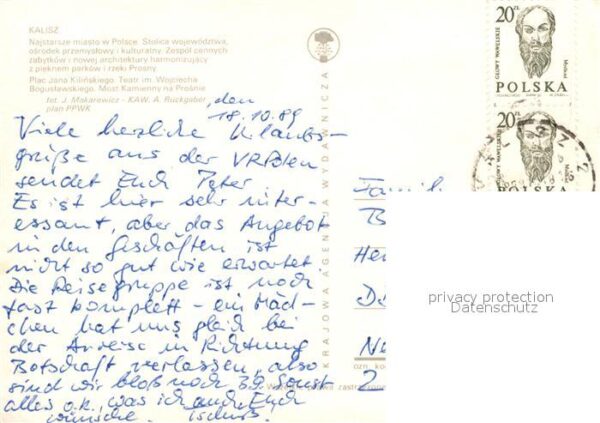 KALISZ
Najstarsze miasto w Polsce. Stolica województwa,
ośrodek przemysłowy i kulturalny. Zespół cennych
zabytków i nowej architektury harmonizujący
z pięknem parków i rzeki Prosny
Plac Jana Kilińskiego. Teatr im. Wojciecha
Bogusławskiego. Most Kamienny na Prośnie
fot. J. Makarewicz - KAW. A. Ruckgaber
plan PPWK
den
18.10.89
Viele herzliche Urlaubs-
grüße aus der VR Polen
sendet Euch Peter
Es ist hier sehr inter-
essant, aber das Angebot
in den Geschäften ist
nicht so gut wie erwartet.
Die Reisegruppe ist noch
fast komplett - ein Mäd-
chen hat uns gleich bei
der Anreise in Richtung
Botschaft verlassen, also
sind wir bloß noch 39. Sonst
alles o.k., was ich auch Euch
wünsche. Tschüß.
KRAJOWA AGENCJA WYDAWNICZA
20 zł
GŁOWY WAWELSKIE
POLSKA
20 zł
GŁOWY WAWELSKIE
POLSKA
Famil
B
He
D
Ne
2
privacy protection
Datenschutz